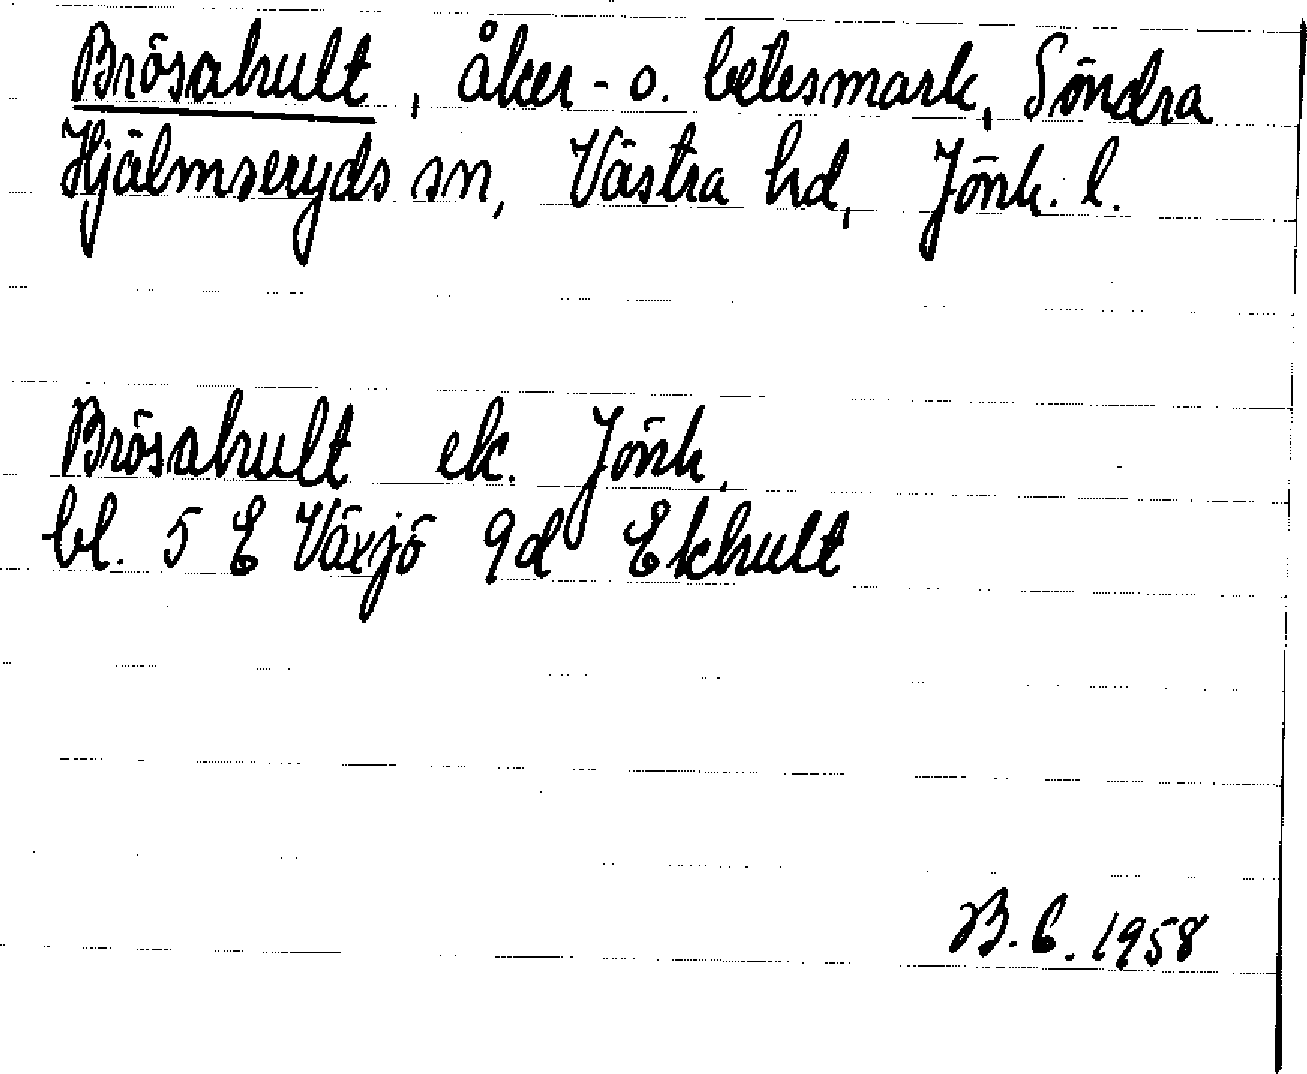 Brösahult, åker- o. betesmark, Södra
Hjälmseryds sn, Västra hd, Jönk. l.
Brösahult ek. Jönk.
bl. 5 E Växjö 9d Ekhult
B. E. 1958